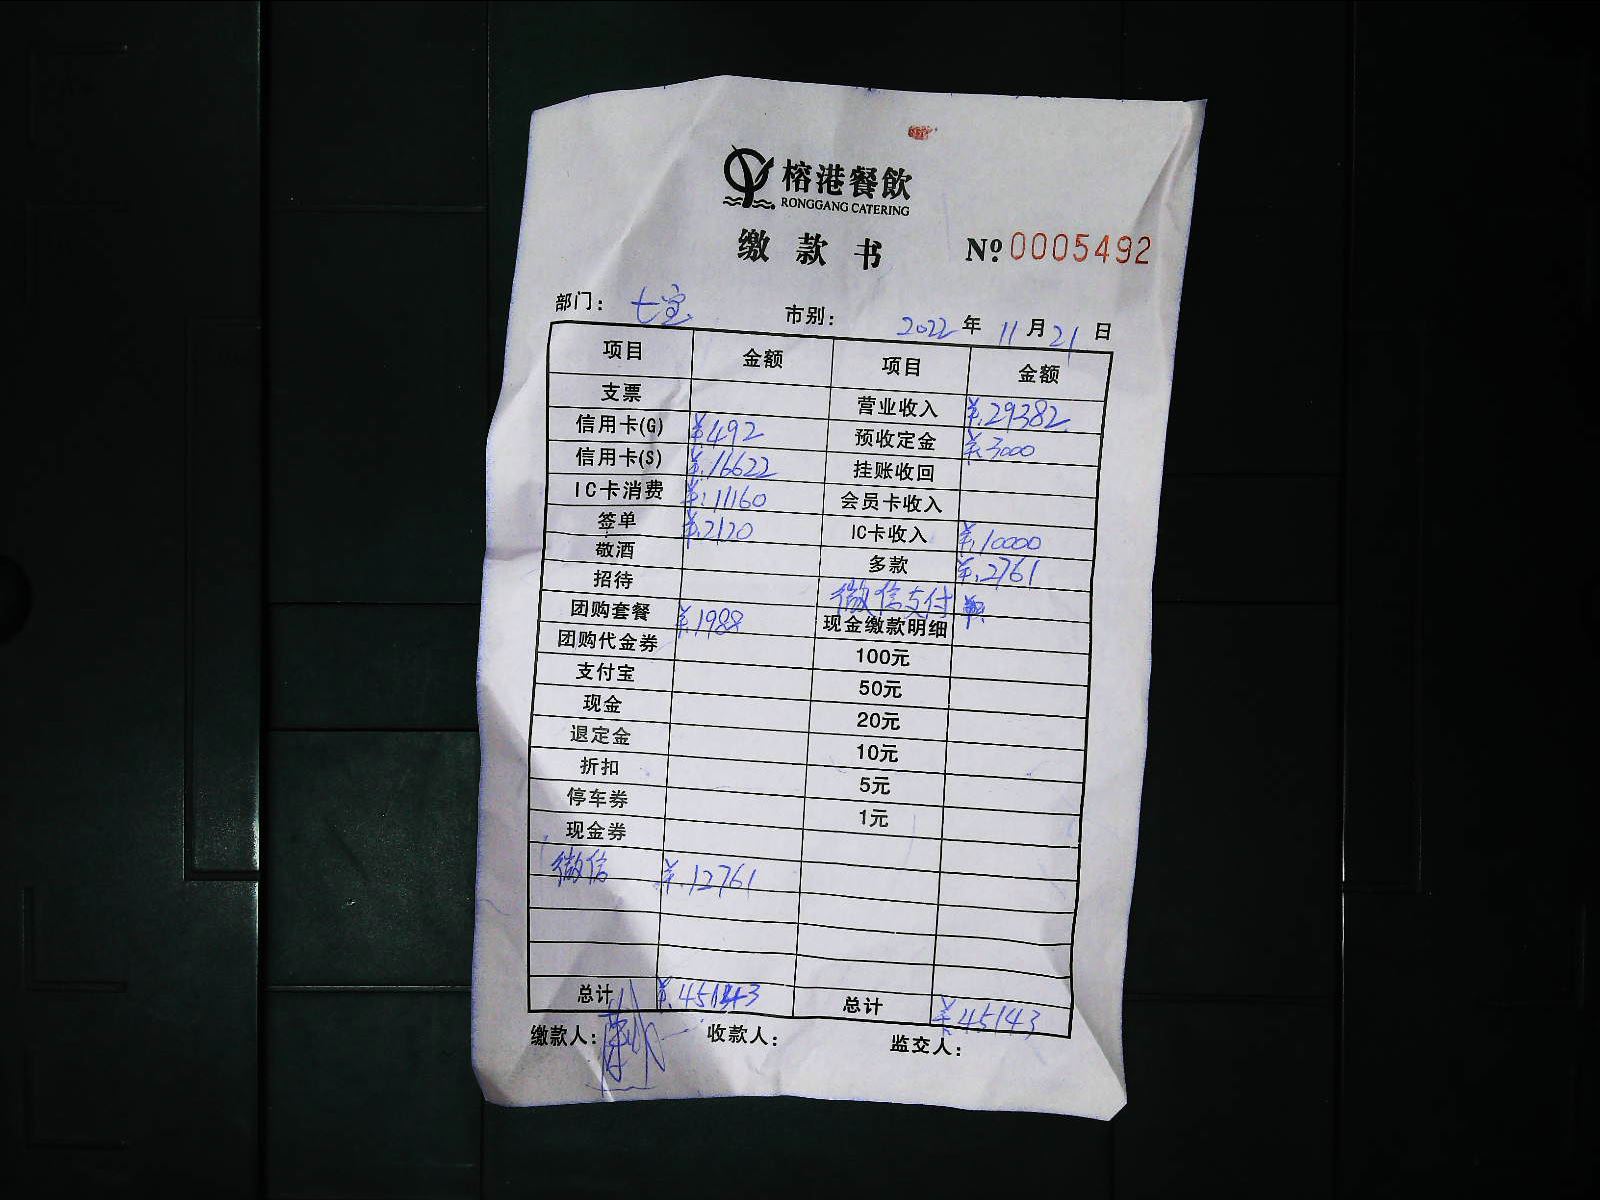 榕港餐飲
RONGGANG CATERING
缴款书 № 0005492
部门: 七宝 市别: 2022年11月21日
项目 金额 项目 金额
支票 营业收入 ¥.29382
信用卡(G) ¥492 预收定金 ¥.3000
信用卡(S) ¥.16622 挂账收回
IC卡消费 ¥.11160 会员卡收入
签单 ¥.2120 IC卡收入 ¥.10000
敬酒 多款 ¥.2761
招待 微信支付
团购套餐 ¥.1988 现金缴款明细
团购代金券 100元
支付宝 50元
现金 20元
退定金 10元
折扣 5元
停车券 1元
现金券
微信 ¥.12761
总计 ¥.45143 总计 ¥45143
缴款人: 收款人: 监交人: